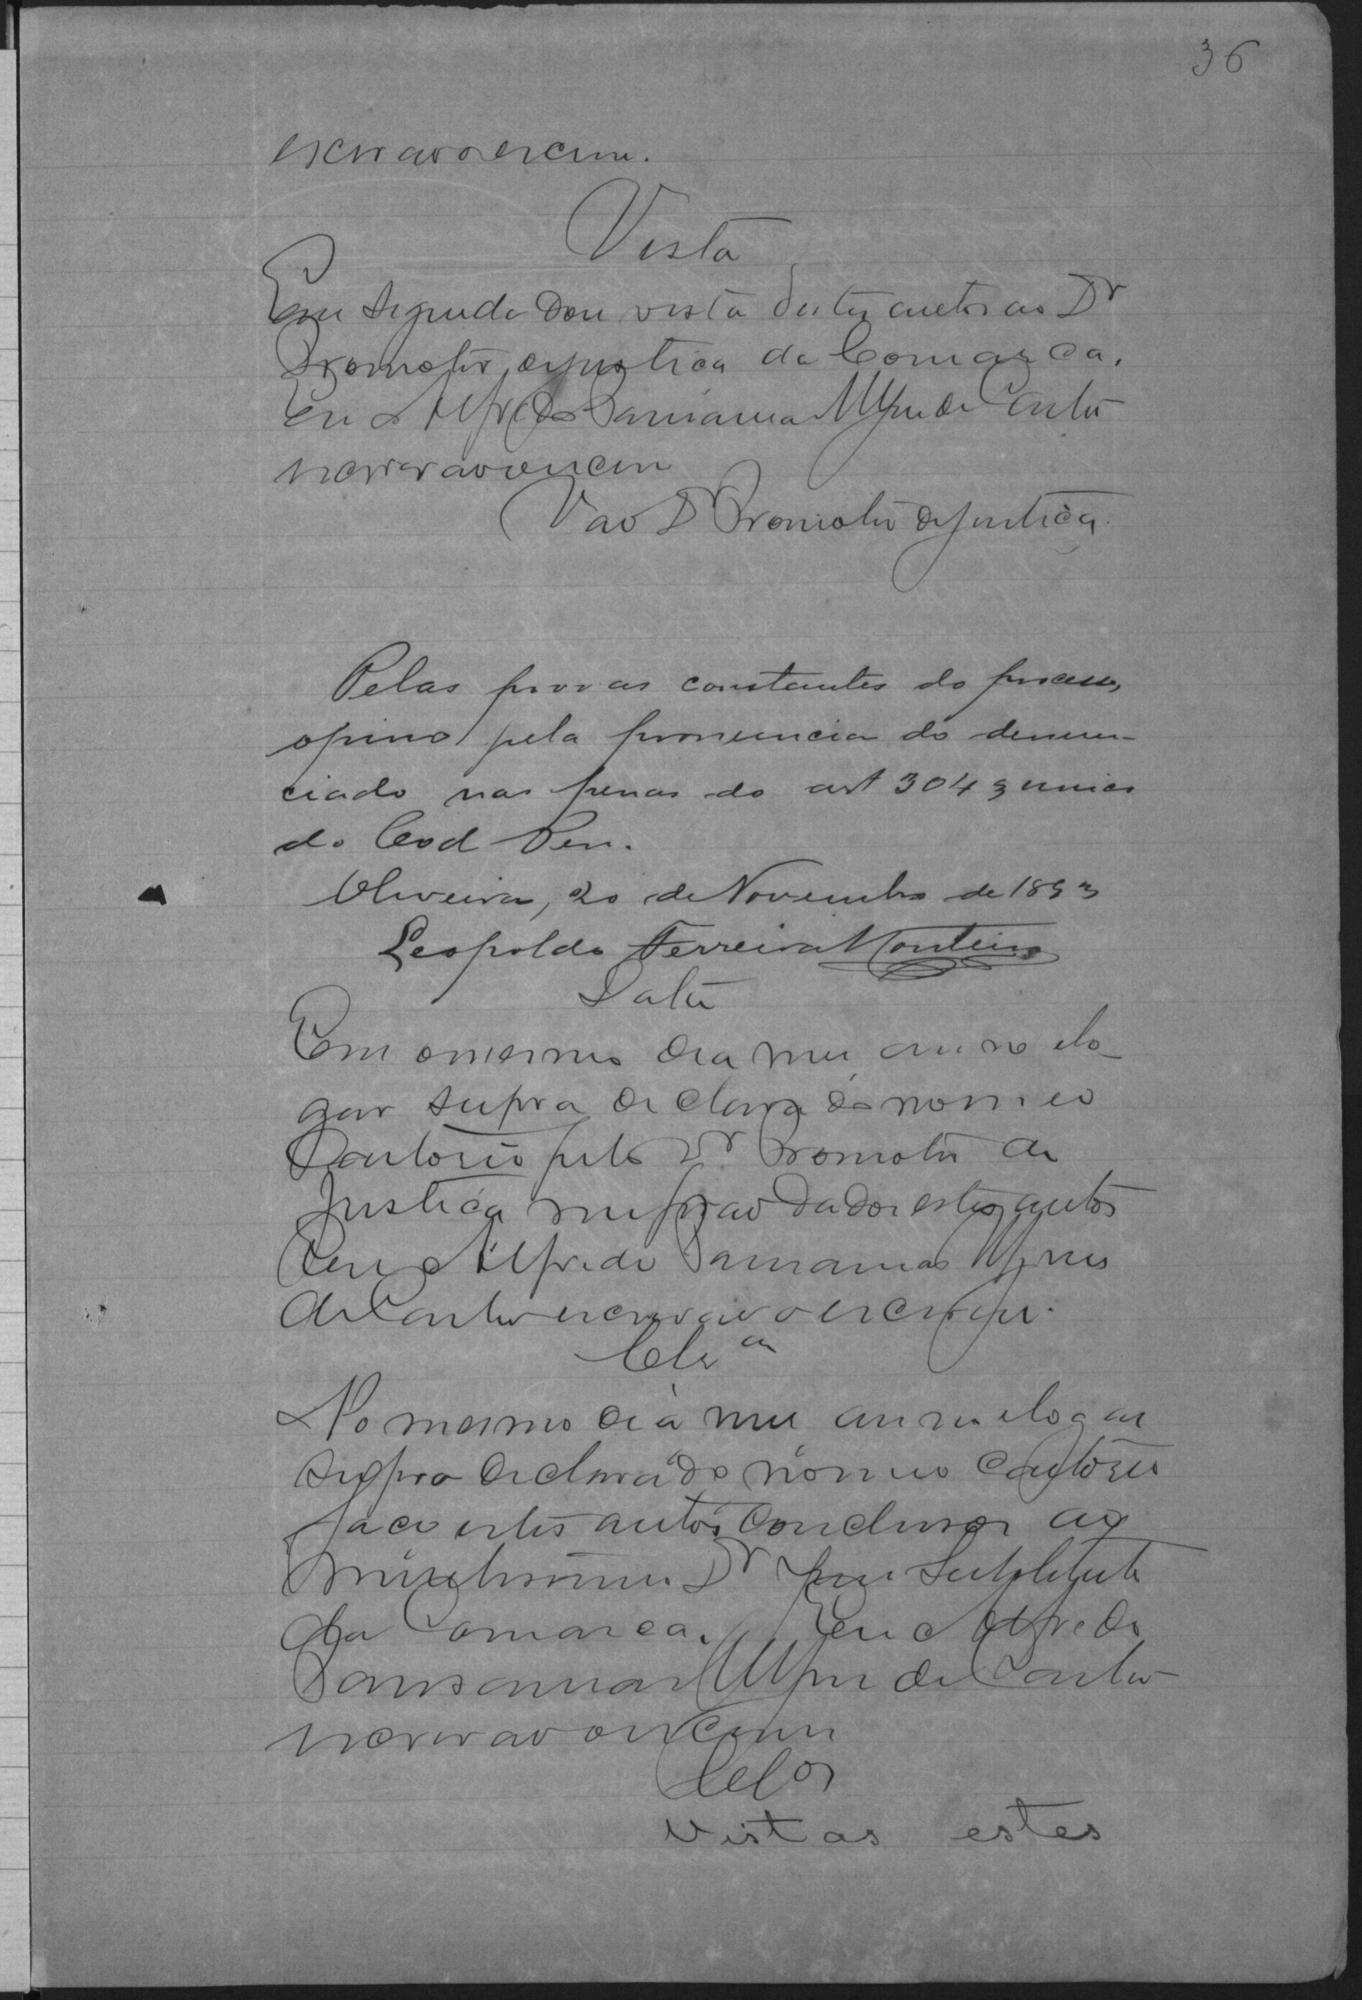 36
escrivão o escrevi.
Vista
Em seguida dou vista destes autos ao Dr
Promotor de Justiça da Comarca.
Eu Alfredo de Castro
escrivão o escrevi
V ao Dr Promotor de Justiça.
Pelas provas constantes do processo,
opino pela pronuncia do denun-
ciado nas penas do art 304 § unico
do Cod Pen.
Oliveira, 20 de Novembro de 1893
Leopoldo Ferreira Monteiro
Data
Em o mesmo dia mez anno e lo-
gar supra declarado no meo
Cartorio pelo Dr Promotor da
Justiça me forão dados estes autos
Eu Alfredo
de Castro escrivão o escrevi.
Clsam
No mesmo dia mez anno e logar
supra declarado no meo Cartorio
faço estes autos conclusos ao
Dr Juiz Substituto
da Comarca. Eu Alfredo
de Castro
escrivão o escrevi
Clos
Vistas estes